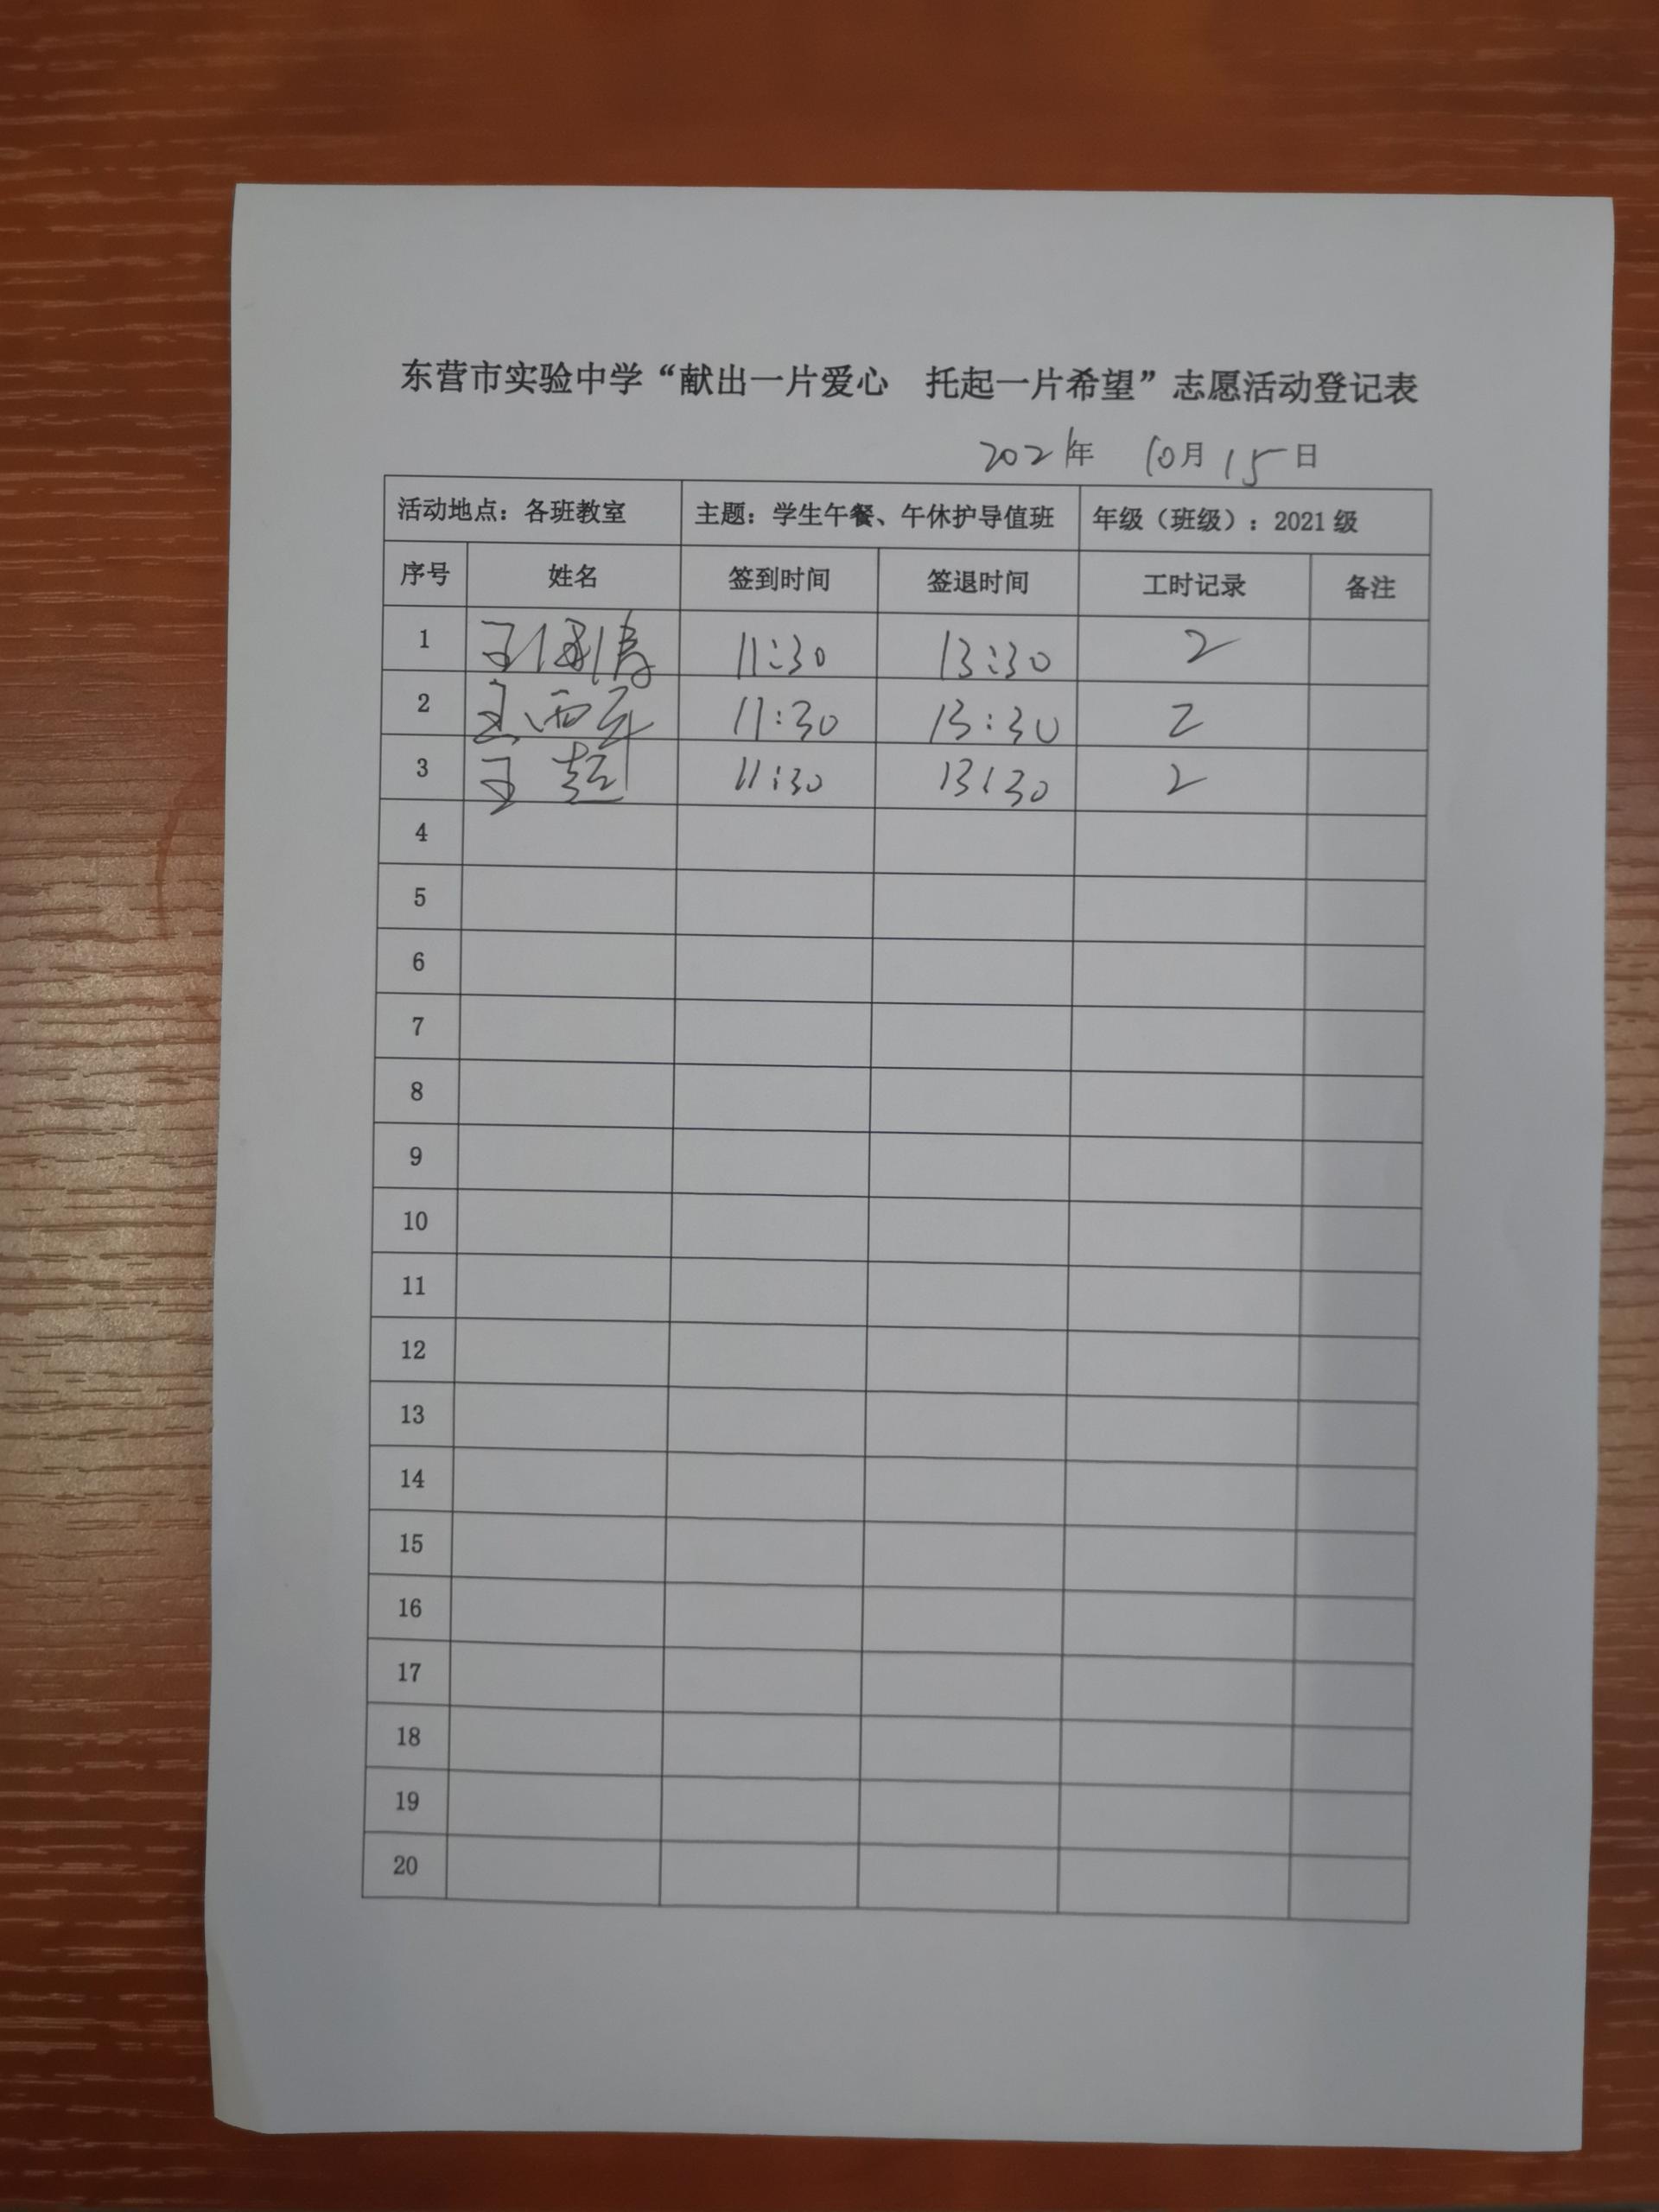 东营市实验中学“献出一片爱心 托起一片希望”志愿活动登记表
2021年 10月15日
活动地点：各班教室 主题：学生午餐、午休护导值班 年级（班级）：2021级
序号 姓名 签到时间 签退时间 工时记录 备注
1 王 11:30 13:30 2
2 王西军 11:30 13:30 2
3 王超 11:30 13:30 2
4
5
6
7
8
9
10
11
12
13
14
15
16
17
18
19
20